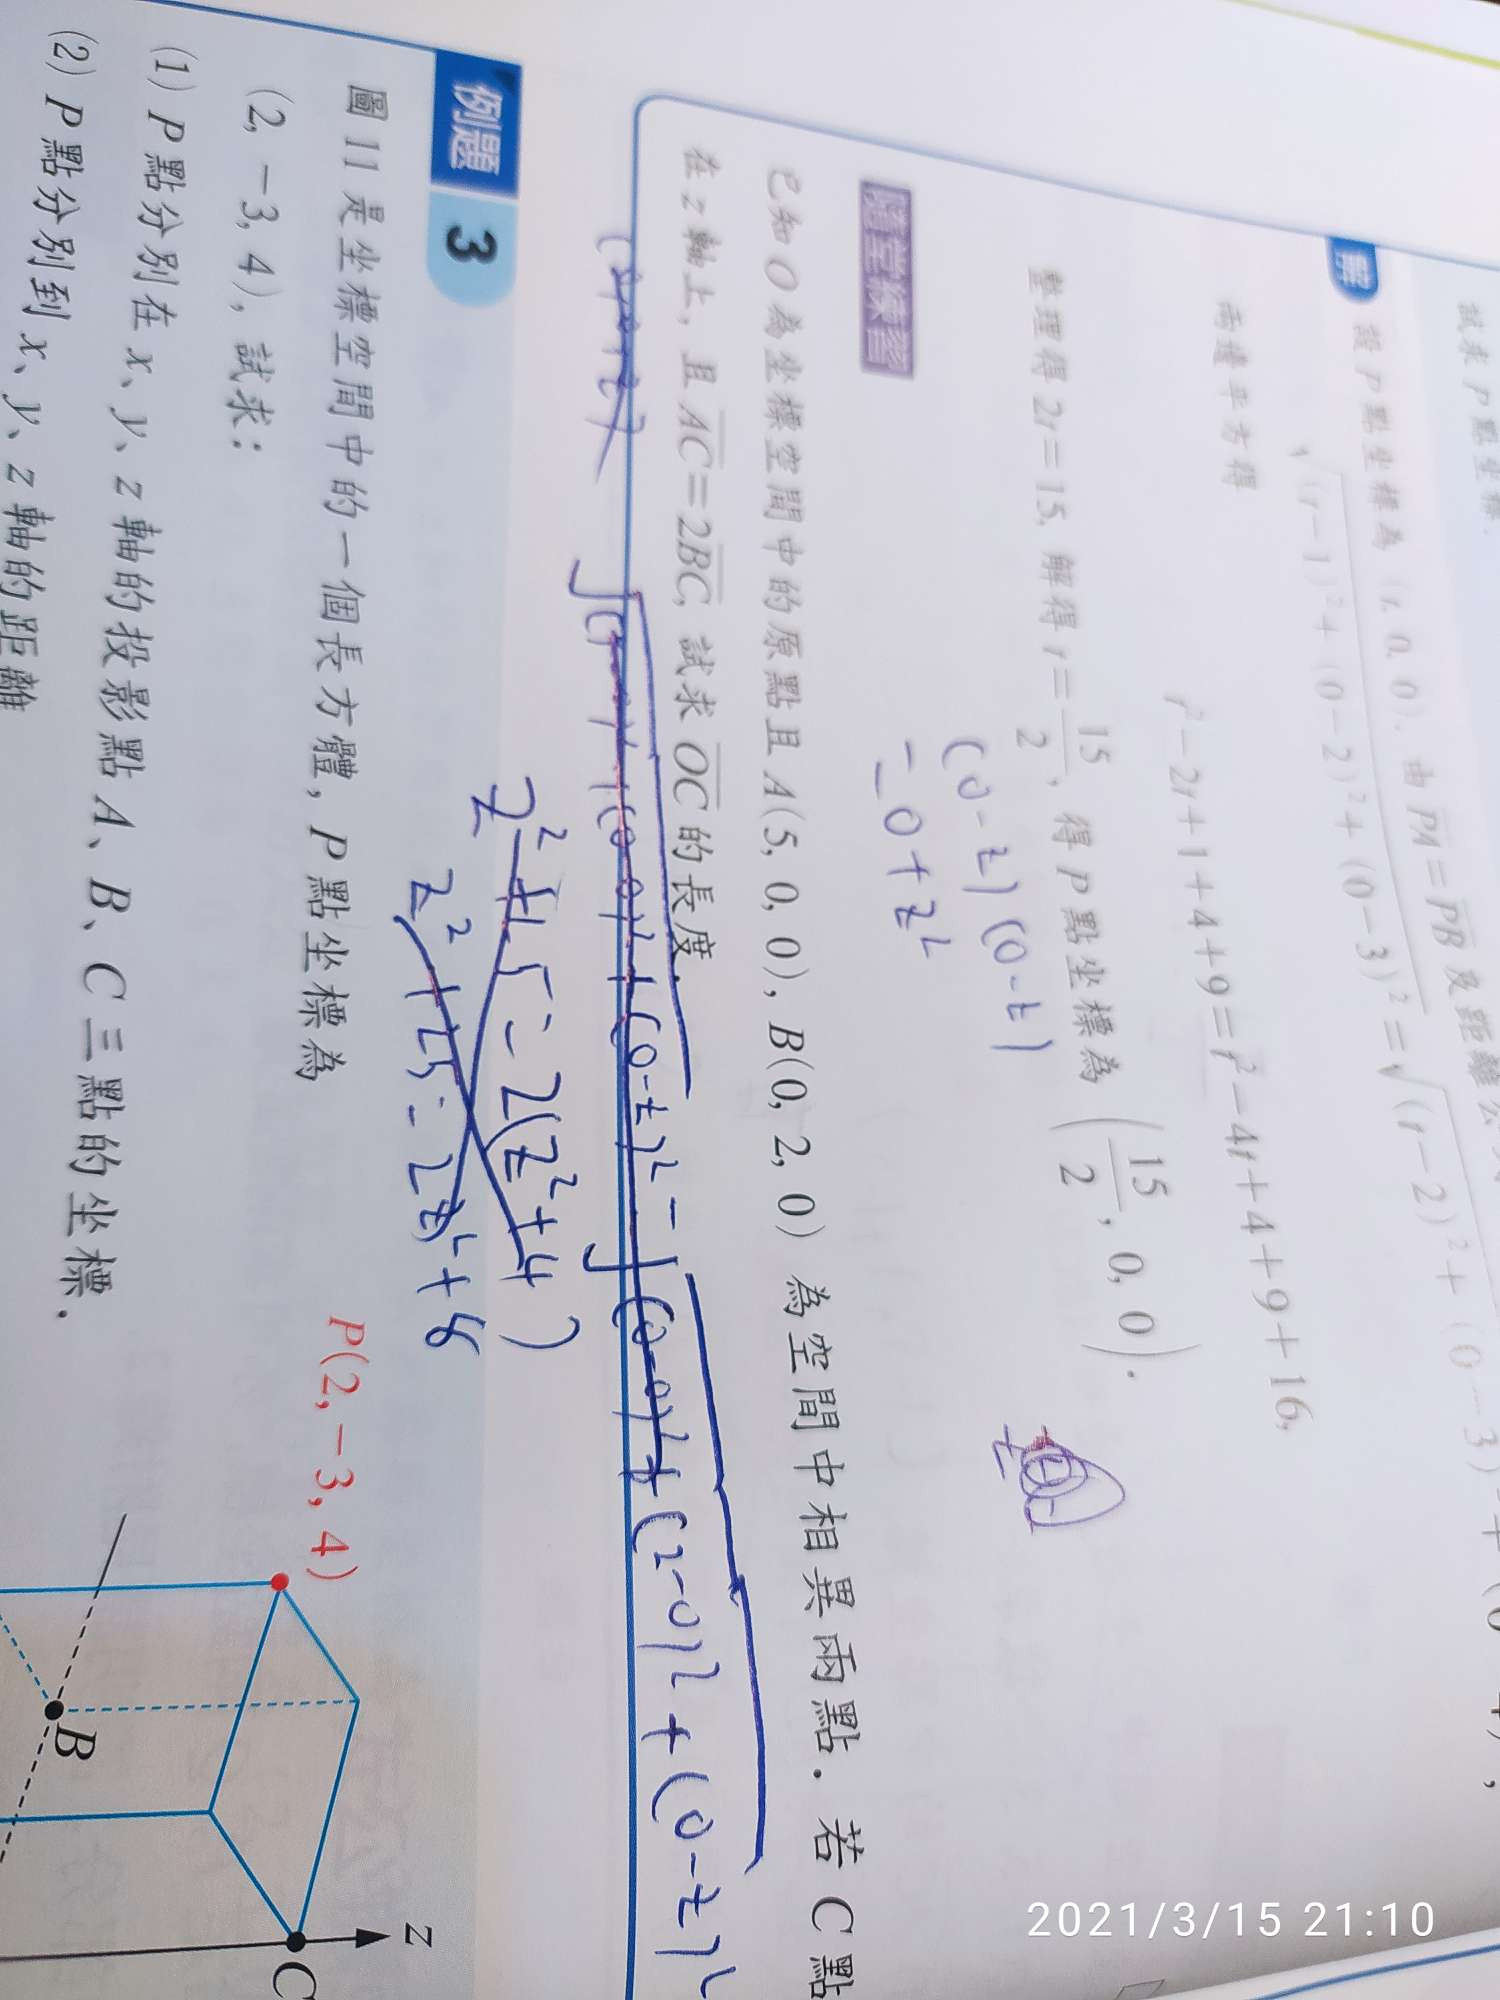 試求 P 點坐標.
解 設 P 點坐標為 (t, 0, 0), 由 PA = PB 及距離公
√(t−1)²+(0−2)²+(0−3)² = √(t−2)²+(0−3)²+
兩邊平方得
t²−2t+1+4+9=t²−4t+4+9+16,
整理得 2t=15, 解得 t=15/2, 得 P 點坐標為 (15/2, 0, 0).
(0-z)(0-z)
-0+z²
隨堂練習
已知 O 為坐標空間中的原點且 A(5, 0, 0), B(0, 2, 0) 為空間中相異兩點. 若 C 點
在 z 軸上, 且 AC=2BC, 試求 OC 的長度.
+(0-z)² = √(0-0)²+(2-0)²+(0-z)²
=2(z²+4)
z²+25=2z²+8
例題 3
圖 11 是坐標空間中的一個長方體, P 點坐標為
(2, −3, 4), 試求:
(1) P 點分別在 x、y、z 軸的投影點 A、B、C 三點的坐標.
(2) P 點分別到 x、y、z 軸的距離
P(2, −3, 4)
B
z
C
2021/3/15 21:10